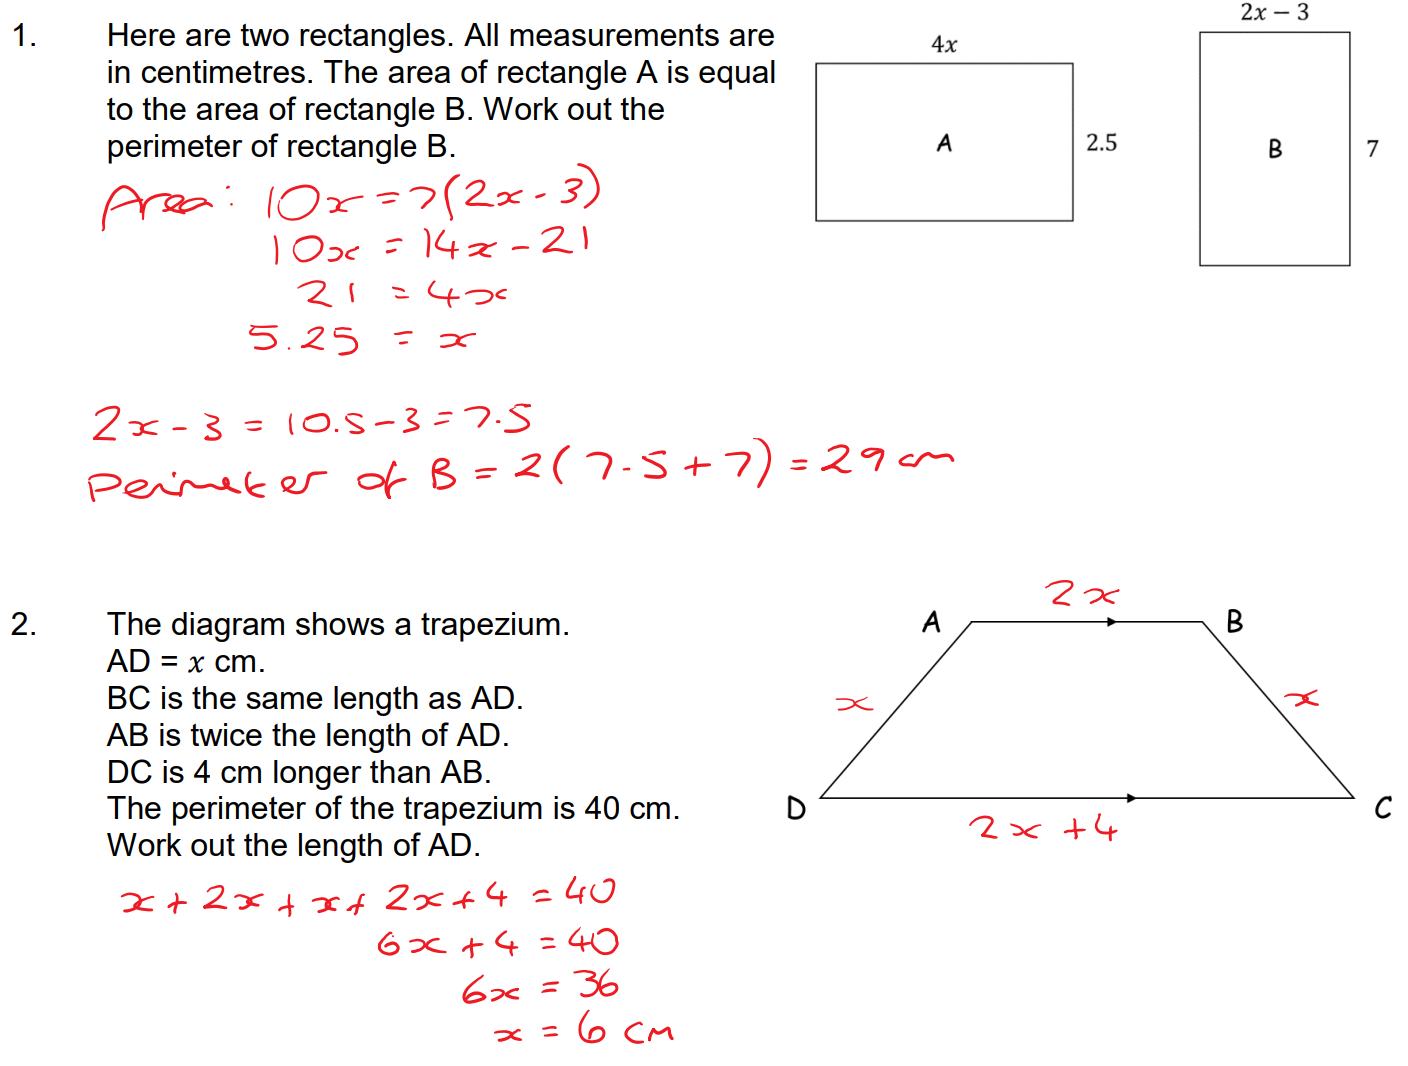 1. Here are two rectangles. All measurements are
in centimetres. The area of rectangle A is equal
to the area of rectangle B. Work out the
perimeter of rectangle B.
4x
A
2.5
2x – 3
B
7
Area: 10x = 7(2x - 3)
10x = 14x - 21
21 = 4x
5.25 = x
2x - 3 = 10.5 - 3 = 7.5
Perimeter of B = 2(7.5 + 7) = 29 cm
2. The diagram shows a trapezium.
AD = x cm.
BC is the same length as AD.
AB is twice the length of AD.
DC is 4 cm longer than AB.
The perimeter of the trapezium is 40 cm.
Work out the length of AD.
2x
A B
x x
D C
2x + 4
x + 2x + x + 2x + 4 = 40
6x + 4 = 40
6x = 36
x = 6 cm